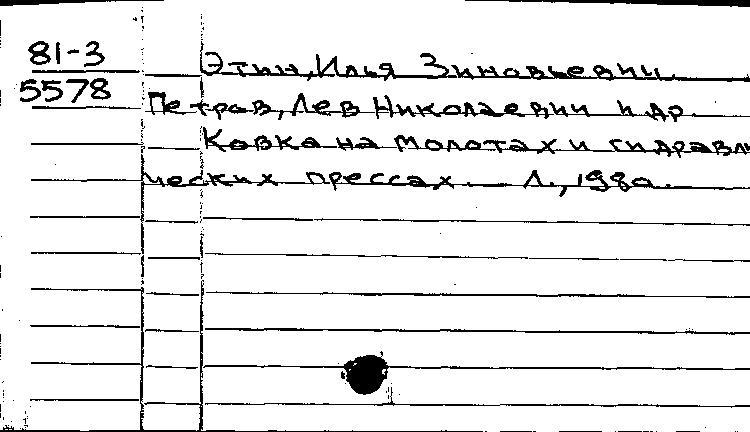 81-3
Этин, Илья Зиновьевич.
5578
Петров, Лев Николаевич и др.
Ковка на молотах и гидравли
ческих прессах. — Л., 1980.